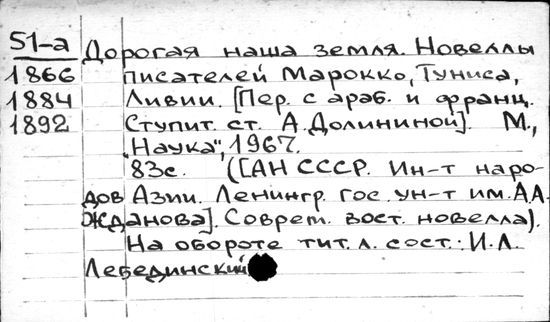 51-а Дорогая наша земля. Новеллы
1866 писателей Марокко, Туниса,
1884 Ливии. [Пер. с араб. и франц.
1892 Ступит. ст. А. Долининой]. М.,
„Наука", 1967.
83с. ([АН СССР. Ин-т наро-
дов Азии. Ленингр. гос. ун-т им. А.А.
Жданова]. Соврем. вост. новелла).
На обороте тит. л. сост.: И.Л.
Лебединский